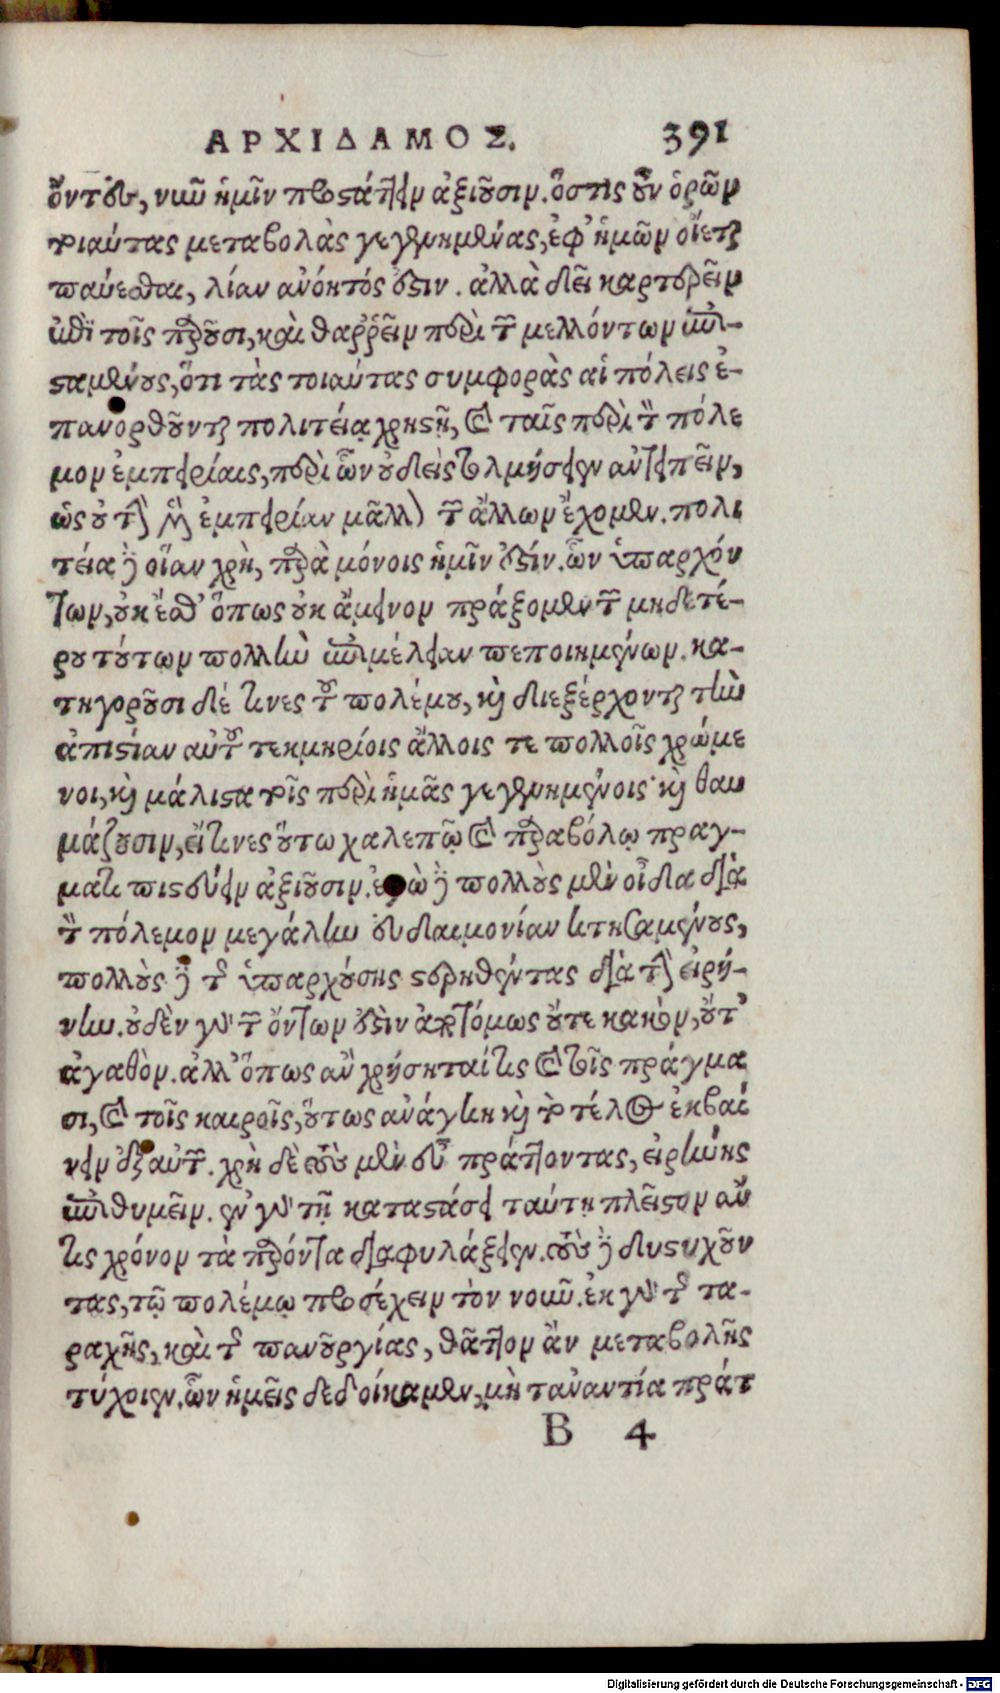 ΑΡΧΙΔΑΜΟΣ. 391
ὄντες, νῦν ἡμῖν προστάττειν ἀξιοῦσιν. ὅστις οὖν ὁρῶν
τοιαύτας μεταβολὰς γεγενημένας, ἐφ' ἡμῶν οἴεται
παύεσθαι, λίαν ἀνόητός ἐστιν. ἀλλὰ δεῖ καρτερεῖν
ἐπὶ τοῖς παροῦσι, καὶ θαῤῥεῖν περὶ τῶν μελλόντων ἐπι-
σταμένους, ὅτι τὰς τοιαύτας συμφορὰς αἱ πόλεις ἐ-
πανορθοῦνται πολιτείᾳ χρηστῇ, καὶ ταῖς περὶ τὸν πόλε
μον ἐμπειρίαις, περὶ ὧν οὐδεὶς τολμήσειεν ἀντειπεῖν,
ὡς οὐ τὴν μὲν ἐμπειρίαν μᾶλλον τῶν ἄλλων ἔχομεν. πολι
τεία δὲ οἵαν χρὴ, παρὰ μόνοις ἡμῖν ἐστίν. ὧν ὑπαρχόν
των, οὐκ ἔσθ' ὅπως οὐκ ἄμεινον πράξομεν τῶν μηδετέ-
ρου τούτων πολλὴν ἐπιμέλειαν πεποιημένων. κα-
τηγοροῦσι δέ τινες τοῦ πολέμου, καὶ διεξέρχονται τὴν
ἀπιστίαν αὐτοῦ τεκμηρίοις ἄλλοις τε πολλοῖς χρώμε
νοι, καὶ μάλιστα τοῖς περὶ ἡμᾶς γεγενημένοις· καὶ θαυ
μάζουσιν, εἴ τινες οὕτω χαλεπῷ καὶ παραβόλῳ πράγ-
ματι πιστεύειν ἀξιοῦσιν. ἐγὼ δὲ πολλοὺς μὲν οἶδα διὰ
τὸν πόλεμον μεγάλην εὐδαιμονίαν κτησαμένους,
πολλοὺς δὲ τῆς ὑπαρχούσης στερηθέντας διὰ τὴν εἰρή-
νην. οὐδὲν γὰρ τῶν ὄντων ἐστὶν ἀποτόμως οὔτε κακὸν, οὔτ'
ἀγαθὸν. ἀλλ' ὅπως ἂν χρήσηταί τις καὶ τοῖς πράγμα
σι, καὶ τοῖς καιροῖς, οὕτως ἀνάγκη καὶ τὸ τέλος ἐκβαί
νειν ἐξ αὐτῶν. χρὴ δὲ τοὺς μὲν εὖ πράττοντας, εἰρήνης
ἐπιθυμεῖν. ἐν γὰρ τῇ καταστάσει ταύτῃ πλεῖστον ἄν
τις χρόνον τὰ παρόντα διαφυλάξειεν. τοὺς δὲ δυστυχοῦν
τας, τῷ πολέμῳ προσέχειν τὸν νοῦν. ἐκ γὰρ τῆς τα-
ραχῆς, καὶ τῆς πανουργίας, θᾶττον ἂν μεταβολῆς
τύχοιεν. ὧν ἡμεῖς δεδοίκαμεν, μὴ τἀναντία πράτ
B 4
Digitalisierung gefördert durch die Deutsche Forschungsgemeinschaft - DFG